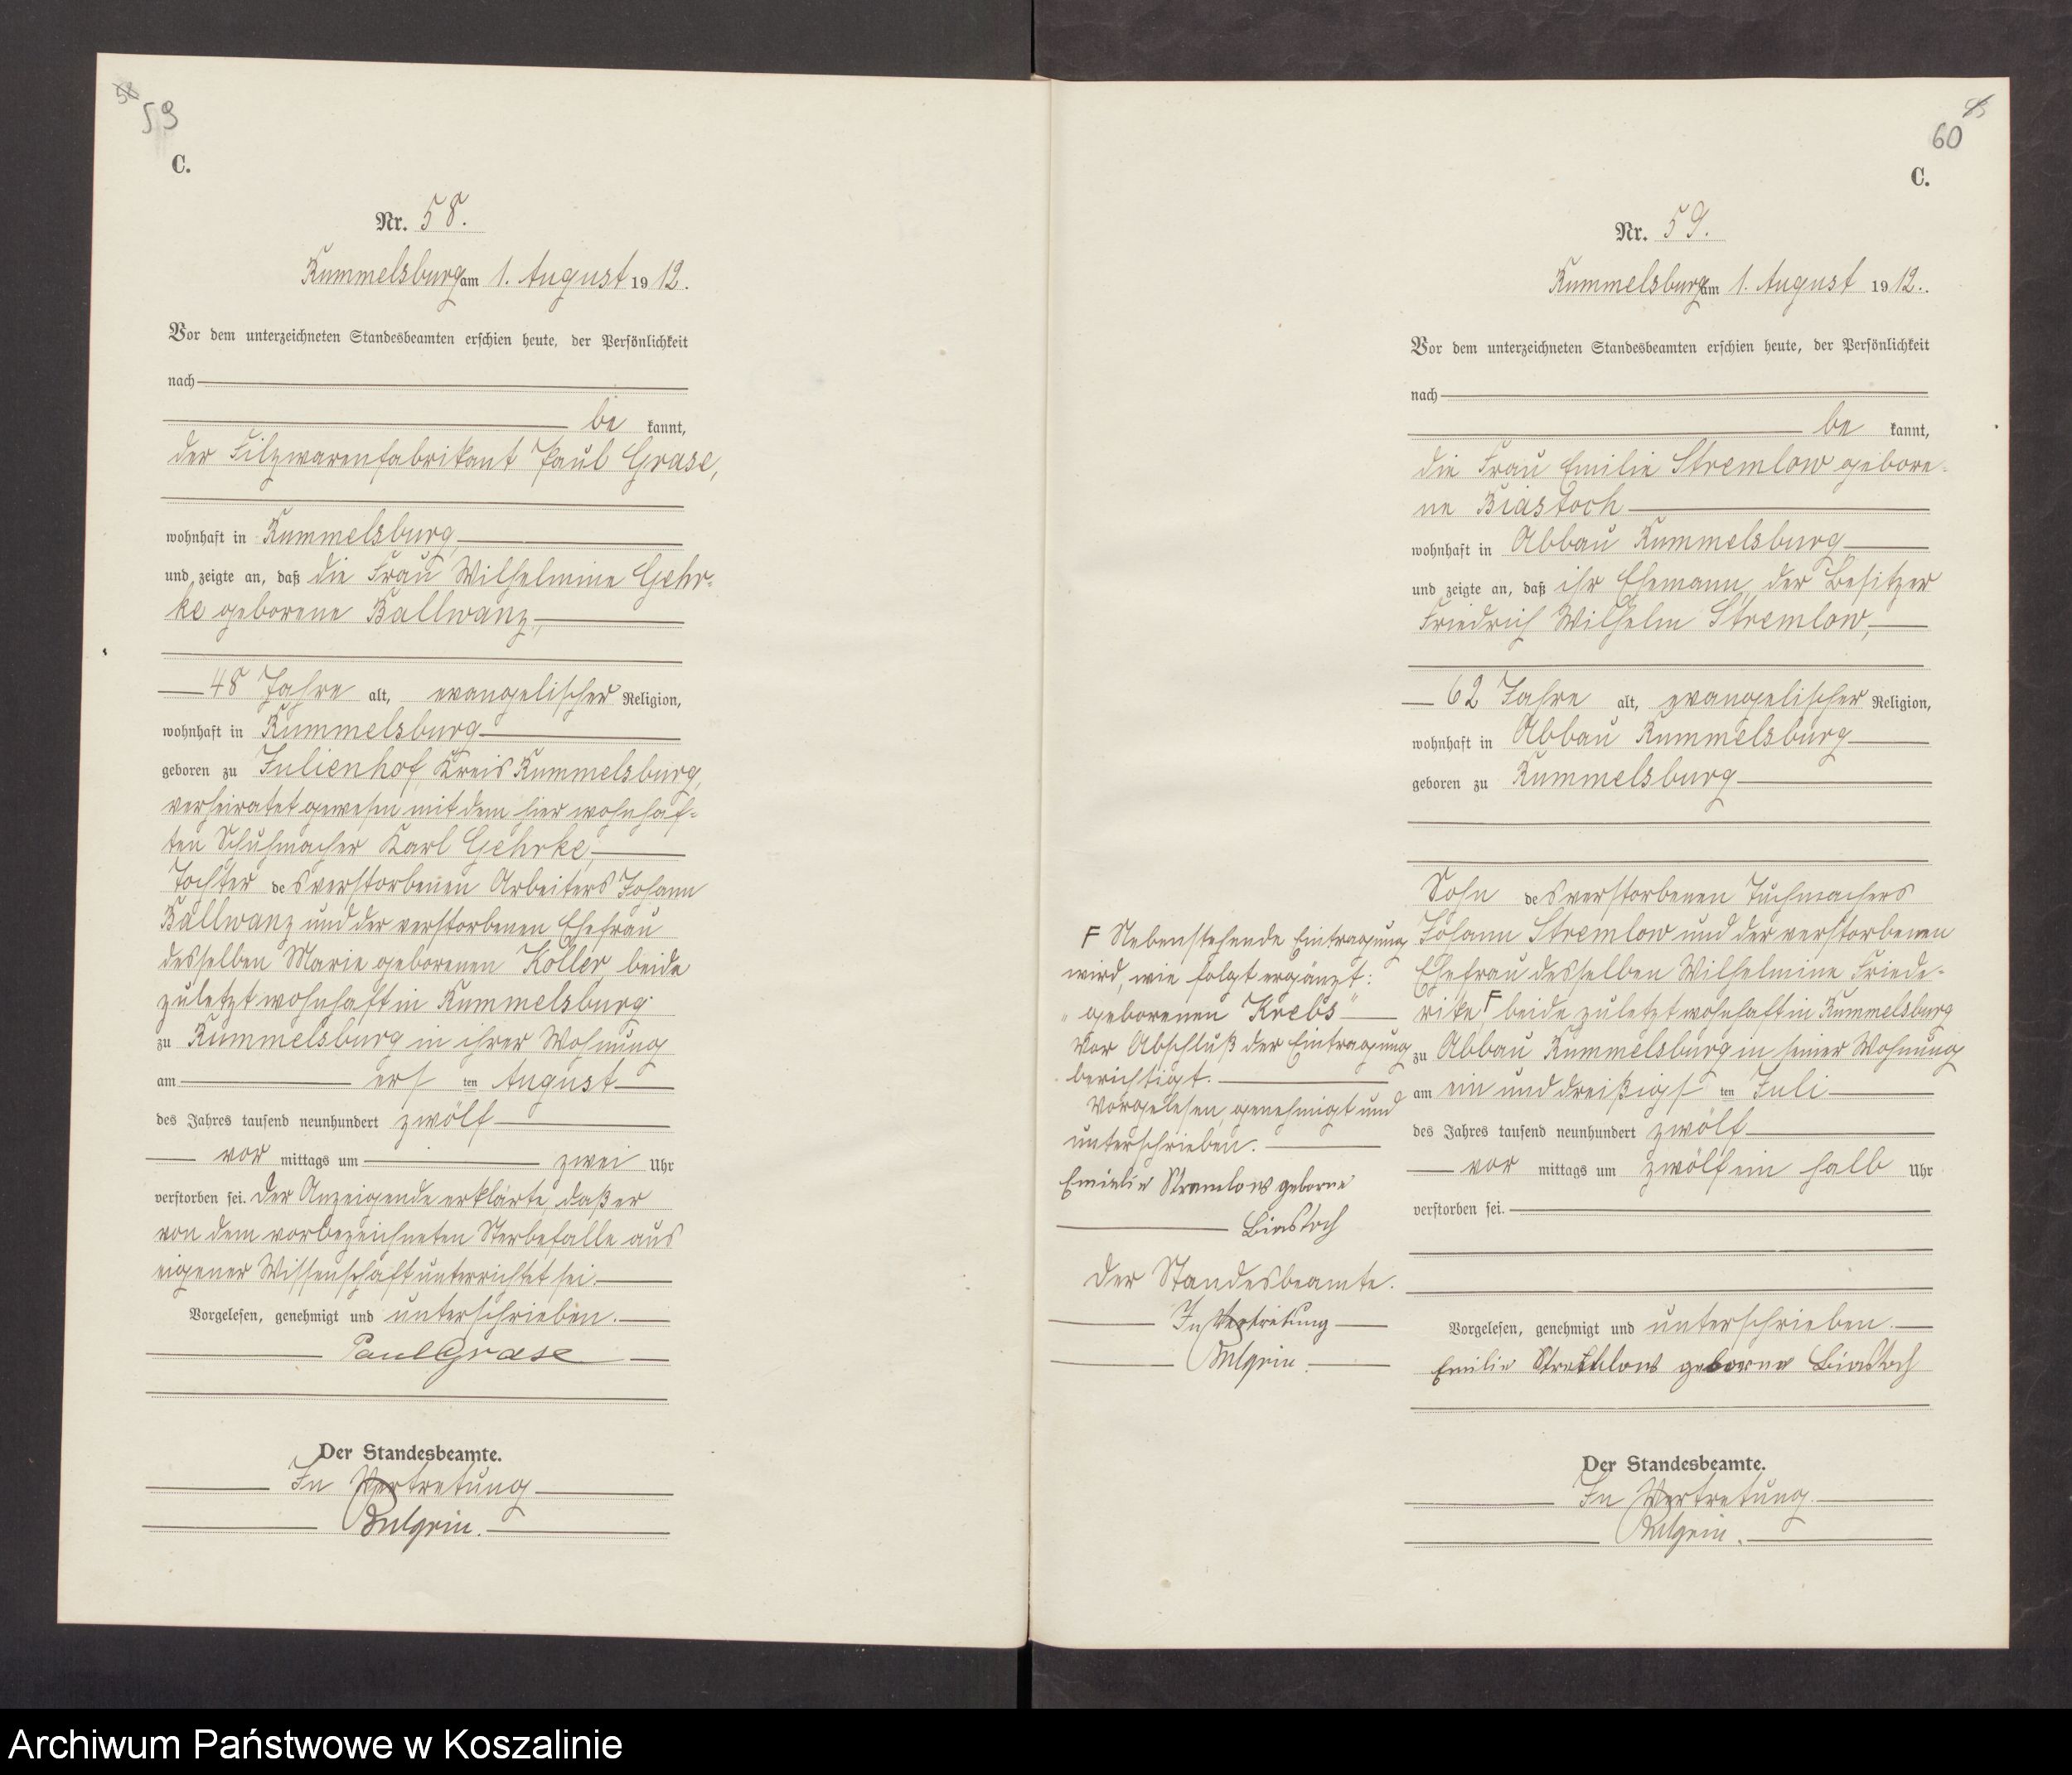 58
59
C.
Nr. 58.
Rummelsburg am 1. August 1912.
Vor dem unterzeichneten Standesbeamten erschien heute, der Persönlichkeit
nach
be kannt,
der Filzwarenfabrikant Paul Grase,
wohnhaft in Rummelsburg,
und zeigte an, daß die Frau Wilhelmine Gehr-
ke geborene Ballwanz,
48 Jahre alt, evangelischer Religion,
wohnhaft in Rummelsburg
geboren zu Julienhof, Kreis Rummelsburg,
verheiratet gewesen mit dem hier wohnhaf-
ten Schuhmacher Karl Gehrke,
Tochter des verstorbenen Arbeiters Johann
Ballwanz und der verstorbenen Ehefrau
desselben Marie geborenen Koller, beide
zuletzt wohnhaft in Rummelsburg
zu Rummelsburg in ihrer Wohnung
am ers ten August
des Jahres tausend neunhundert zwölf
vor mittags um zwei Uhr
verstorben sei. Der Anzeigende erklärte, daß er
von dem vorbezeichneten Sterbefalle aus
eigener Wissenschaft unterrichtet sei.
Vorgelesen, genehmigt und unterschrieben.
Paul Grase
Der Standesbeamte.
In Vertretung
Bulgrin.
60
C.
Nr. 59.
Rummelsburg am 1. August 1912.
Vor dem unterzeichneten Standesbeamten erschien heute, der Persönlichkeit
nach
be kannt,
die Frau Emilie Stremlow gebore-
ne Biastoch
wohnhaft in Abbau Rummelsburg
und zeigte an, daß ihr Ehemann, der Besitzer
Friedrich Wilhelm Stremlow,
62 Jahre alt, evangelischer Religion,
wohnhaft in Abbau Rummelsburg
geboren zu Rummelsburg
Sohn des verstorbenen Tuchmachers
Johann Stremlow und der verstorbenen
Ehefrau desselben Wilhelmine Friede-
rike F beide zuletzt wohnhaft in Rummelsburg
zu Abbau Rummelsburg in seiner Wohnung
am ein und dreißigs ten Juli
des Jahres tausend neunhundert zwölf
vor mittags um zwölf ein halb Uhr
verstorben sei.
Vorgelesen, genehmigt und unterschrieben.
Emilie Stremlow geborne Biastoch
Der Standesbeamte.
In Vertretung.
Bulgrin.
F Nebenstehende Eintragung
wird, wie folgt ergänzt:
„geborenen Krebs"
Vor Abschluß der Eintragung
berichtigt.
Vorgelesen, genehmigt und
unterschrieben.
Emielie Stremlow geborne
Biastoch
Der Standesbeamte.
In Vertretung
Bulgrin.
Archiwum Państwowe w Koszalinie